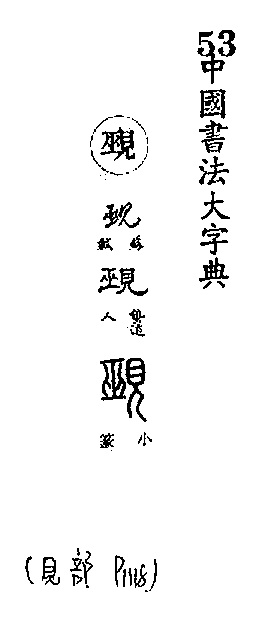 53
中國書法大字典
覡
覡
蘇軾
覡
覡
小篆
(見部 P1118)